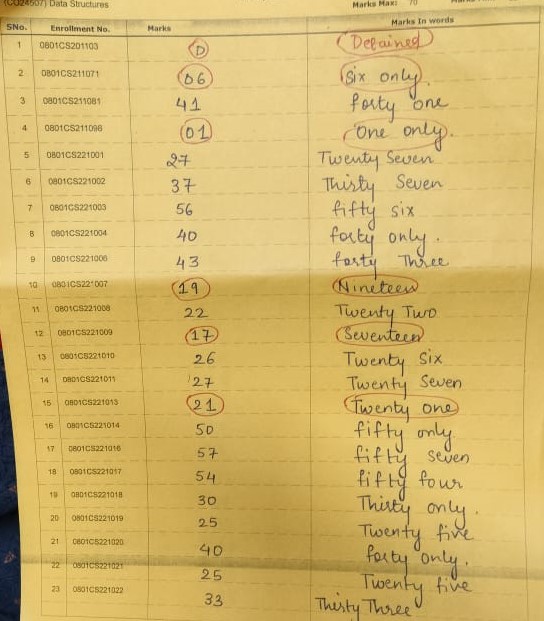 (CO24507) Data Structures
Marks Max: 70
SNo. Enrollment No. Marks Marks In words
1 0801CS201103 D Detained
2 0801CS211071 06 Six only.
3 0801CS211081 41 forty one
4 0801CS211098 01 One only.
5 0801CS221001 27 Twenty Seven
6 0801CS221002 37 Thirty Seven
7 0801CS221003 56 fifty six
8 0801CS221004 40 forty only.
9 0801CS221006 43 forty Three
10 0801CS221007 19 Nineteen
11 0801CS221008 22 Twenty Two
12 0801CS221009 17 Seventeen
13 0801CS221010 26 Twenty Six
14 0801CS221011 27 Twenty Seven
15 0801CS221013 21 Twenty one
16 0801CS221014 50 fifty only
17 0801CS221016 57 fifty seven
18 0801CS221017 54 fifty four
19 0801CS221018 30 Thirty only.
20 0801CS221019 25 Twenty five
21 0801CS221020 40 forty only.
22 0801CS221021 25 Twenty five
23 0801CS221022 33 Thirty Three